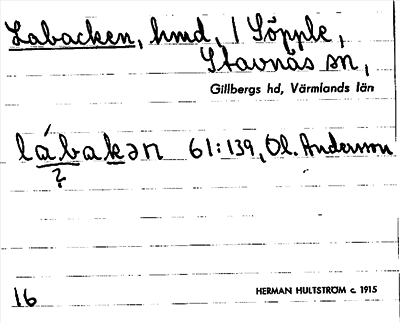 Labacken, hmd, / Söpple,
Stavnäs sn,
Gillbergs hd, Värmlands län
lábakən 61:139, Ol. Andersson
?
16
HERMAN HULTSTRÖM c. 1915